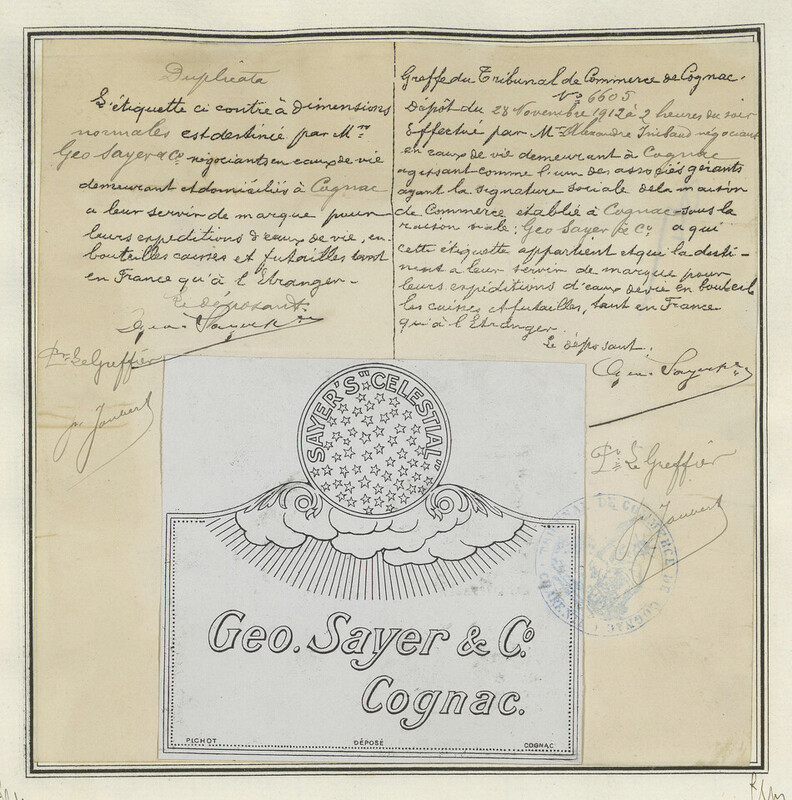 Duplicata
L'étiquette ci contre à dimensions
normales est destinée par Mrs
Geo Sayer & Co négociants en eaux de vie
demeurant et domiciliés à Cognac
a leur servir de marque pour
leurs expéditions d'eaux de vie, en
bouteilles caisses et futailles tant
en France qu'à l'Etranger.
Le déposant.
Geo. Sayer & Co
Pr. Le Greffier
J. Joubert
Greffe du Tribunal de Commerce de Cognac.
No 6605
Dépôt du 28 Novembre 1912 à 2 heures du soir
Effectué par Mr Alexandre négociant
en eaux de vie demeurant à Cognac
agissant comme l'un des associés gérants
ayant la signature sociale de la maison
de Commerce établie à Cognac sous la
raison sociale: Geo Sayer & Co a qui
cette étiquette appartient et qui la desti-
nent a leur servir de marque pour
leurs expéditions d'eaux de vie en bouteil
les caisses et futailles, tant en France
qu'à l'Etranger.
Le déposant.
Geo. Sayer & Co
Pr. Le Greffier
J. Joubert
SAYER'S "CELESTIAL"
Geo. Sayer & Co.
Cognac.
PICHOT DÉPOSÉ COGNAC
TRIBUNAL DE COMMERCE DE COGNAC